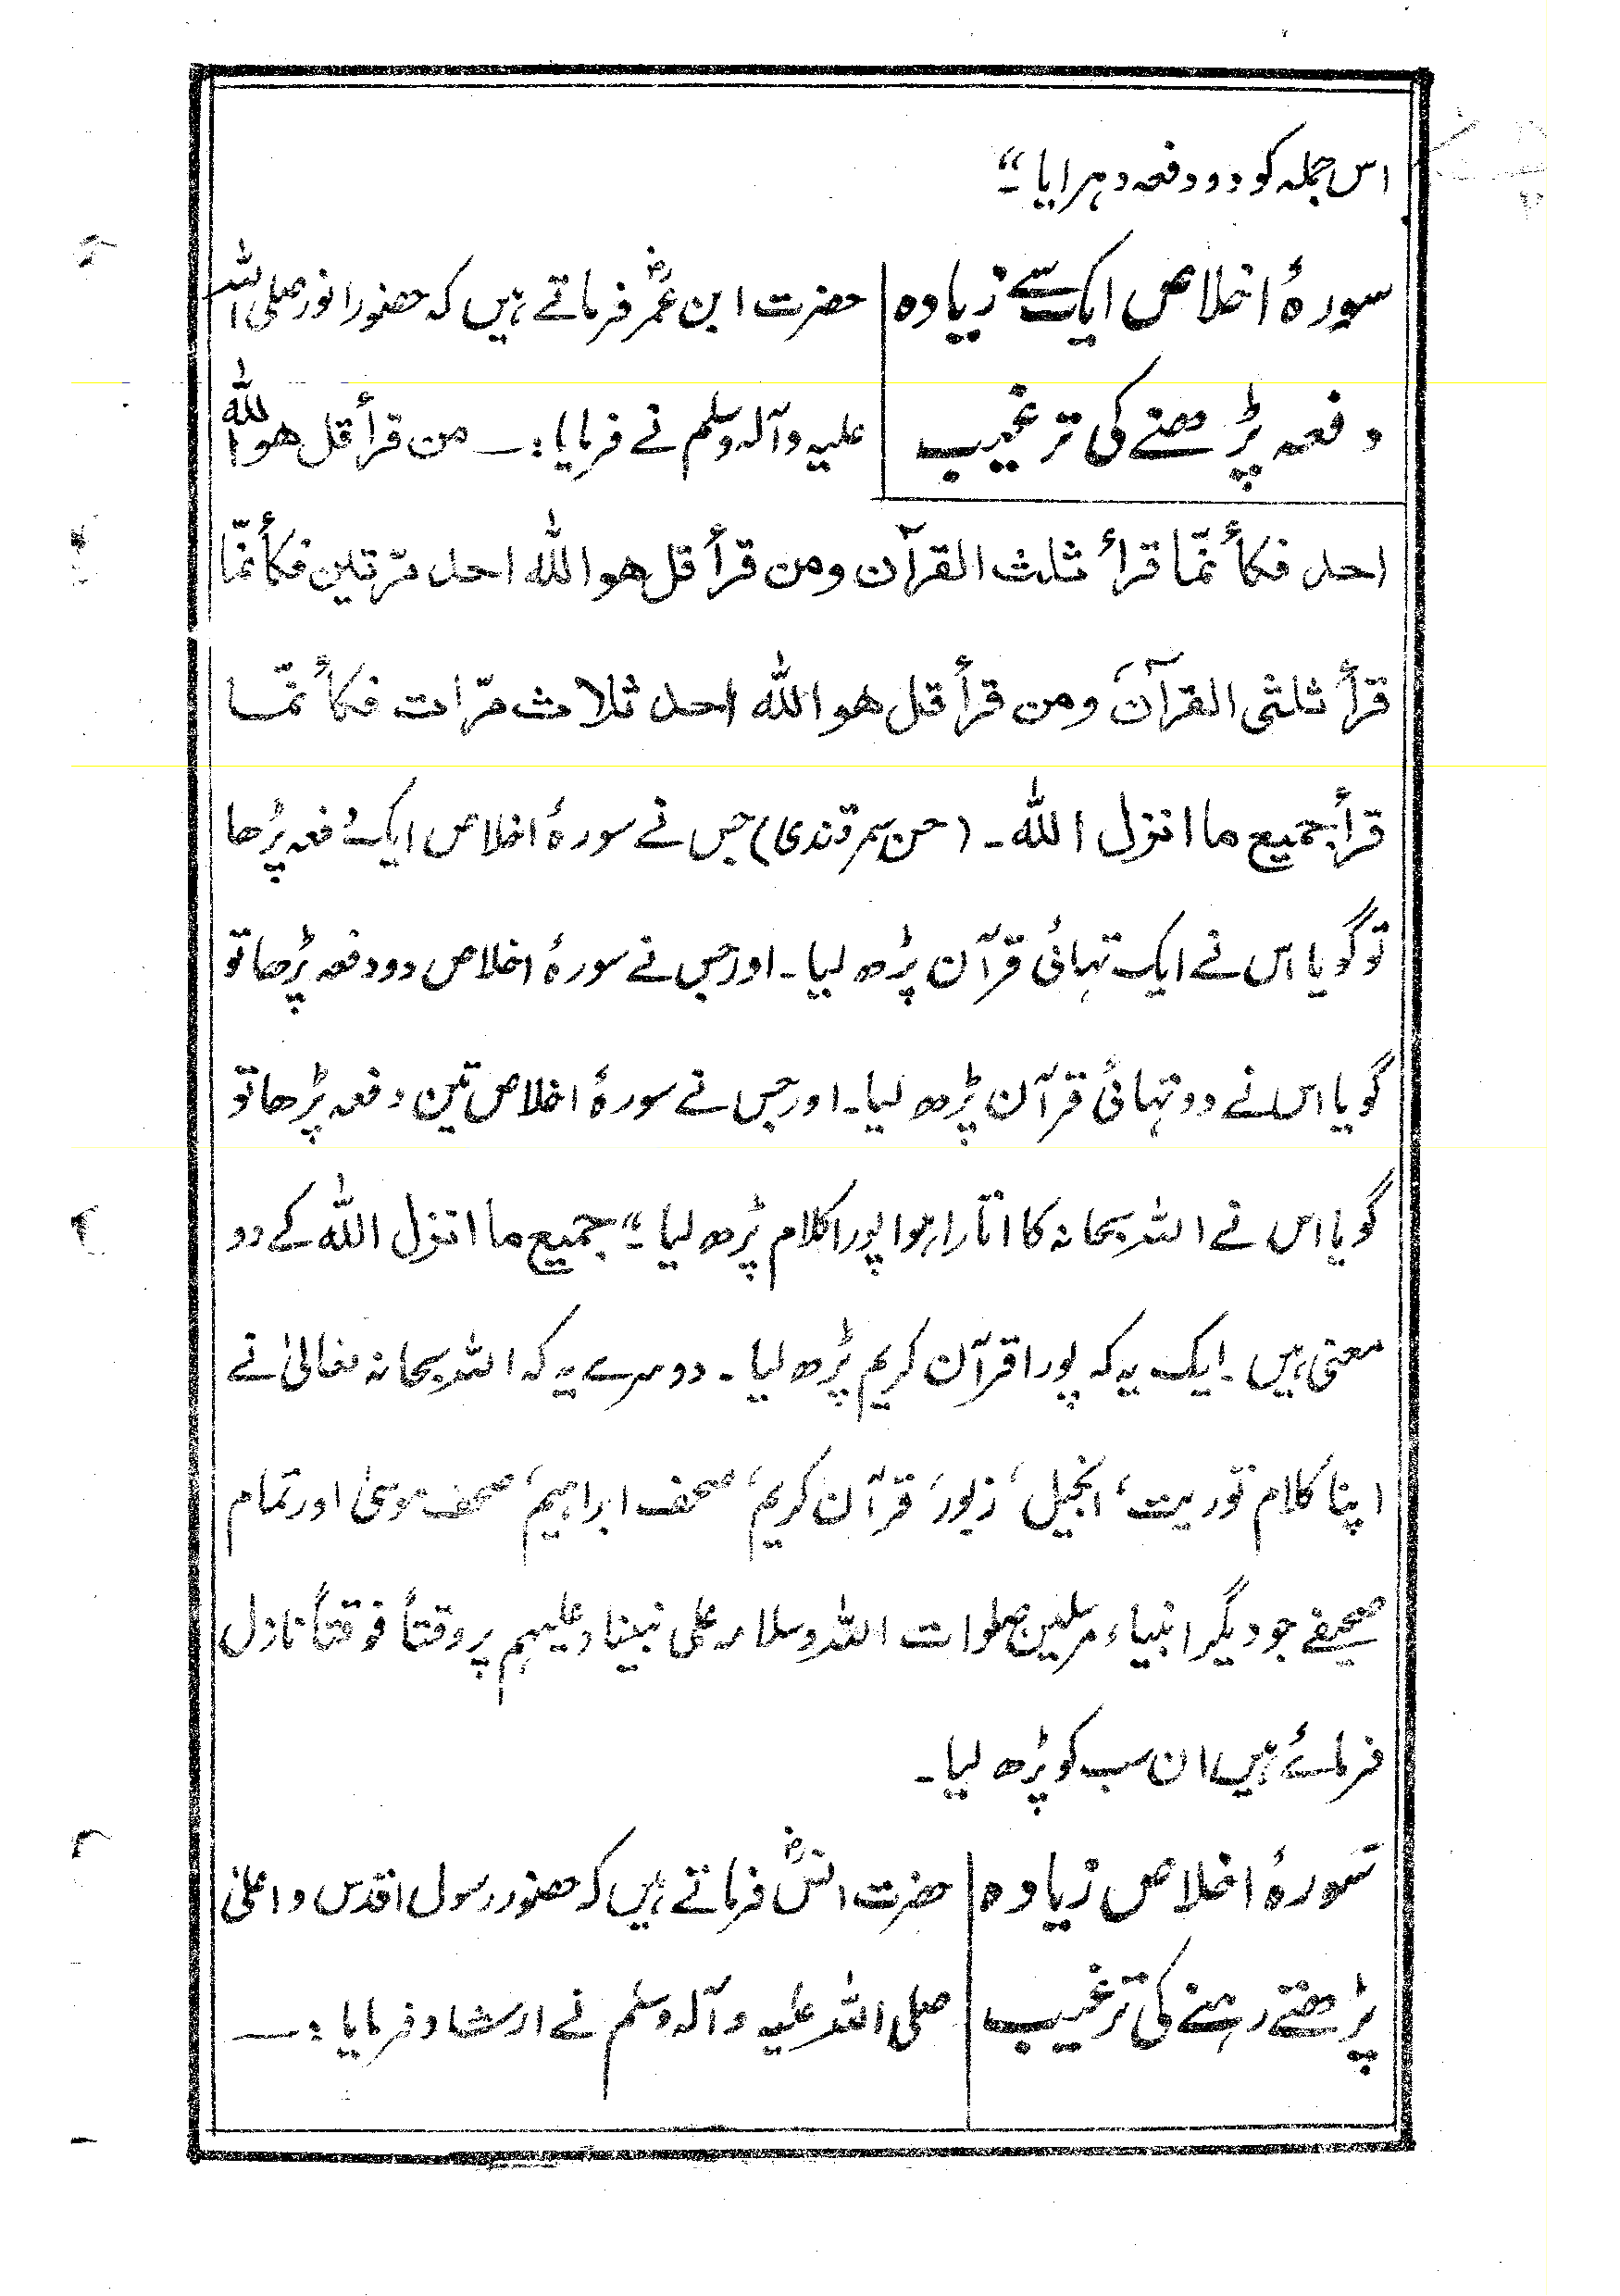 اس جملہ کو دو دفعہ دہرایا۔“
سورۂ اخلاص ایک سے زیادہ
دفعہ پڑھنے کی ترغیب
حضرت ابن عمرؓ فرماتے ہیں کہ حضور انور صلی اللہ
علیہ وآلہ وسلم نے فرمایا:۔ من قرأ قل هو الله
احد فكأنّما قرأ ثلث القرآن ومن قرأ قل هو الله احد مرّتين فكأنّما
قرأ ثلثى القرآن ومن قرأ قل هو الله احد ثلاث مرّات فكأنّما
قرأ جميع ما انزل الله۔ (حسن سمرقندی) جس نے سورۂ اخلاص ایک دفعہ پڑھا
تو گویا اس نے ایک تہائی قرآن پڑھ لیا۔ اور جس نے سورۂ اخلاص دو دفعہ پڑھا تو
گویا اس نے دو تہائی قرآن پڑھ لیا۔ اور جس نے سورۂ اخلاص تین دفعہ پڑھا تو
گویا اس نے اللہ سبحانہ کا اتارا ہوا پورا کلام پڑھ لیا۔“ جمیع ما انزل اللہ کے دو
معنی ہیں۔ ایک یہ کہ پورا قرآن کریم پڑھ لیا۔ دوسرے یہ کہ اللہ سبحانہ تعالیٰ نے
اپنا کلام توریت، انجیل، زبور، قرآن کریم، صحف ابراہیم، صحف موسیٰ اور تمام
صحیفے جو دیگر انبیاء مرسلین صلوات اللہ وسلامہ علی نبینا وعلیہم پر وقتاً فوقتاً نازل
فرمائے ہیں ان سب کو پڑھ لیا۔
سورۂ اخلاص زیادہ
پڑھتے رہنے کی ترغیب
حضرت انسؓ فرماتے ہیں کہ حضور رسول اقدس و اعلیٰ
صلی اللہ علیہ وآلہ وسلم نے ارشاد فرمایا:۔